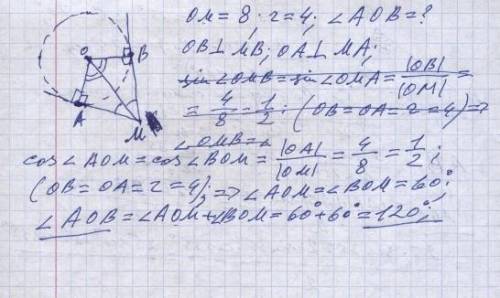 OM = 8; r = 4; ∠AOB = ?
OB ⊥ MB; OA ⊥ MA;
sin∠OMB = sin∠OMA = |OB| / |OM| =
= 4/8 = 1/2; (OB = OA = r = 4) ⇒
∠OMB =
cos∠AOM = cos∠BOM = |OA| / |OM| = 4/8 = 1/2;
(OB = OA = r = 4); ⇒ ∠AOM = ∠BOM = 60°;
∠AOB = ∠AOM + ∠BOM = 60° + 60° = 120°;
O
B
A
M